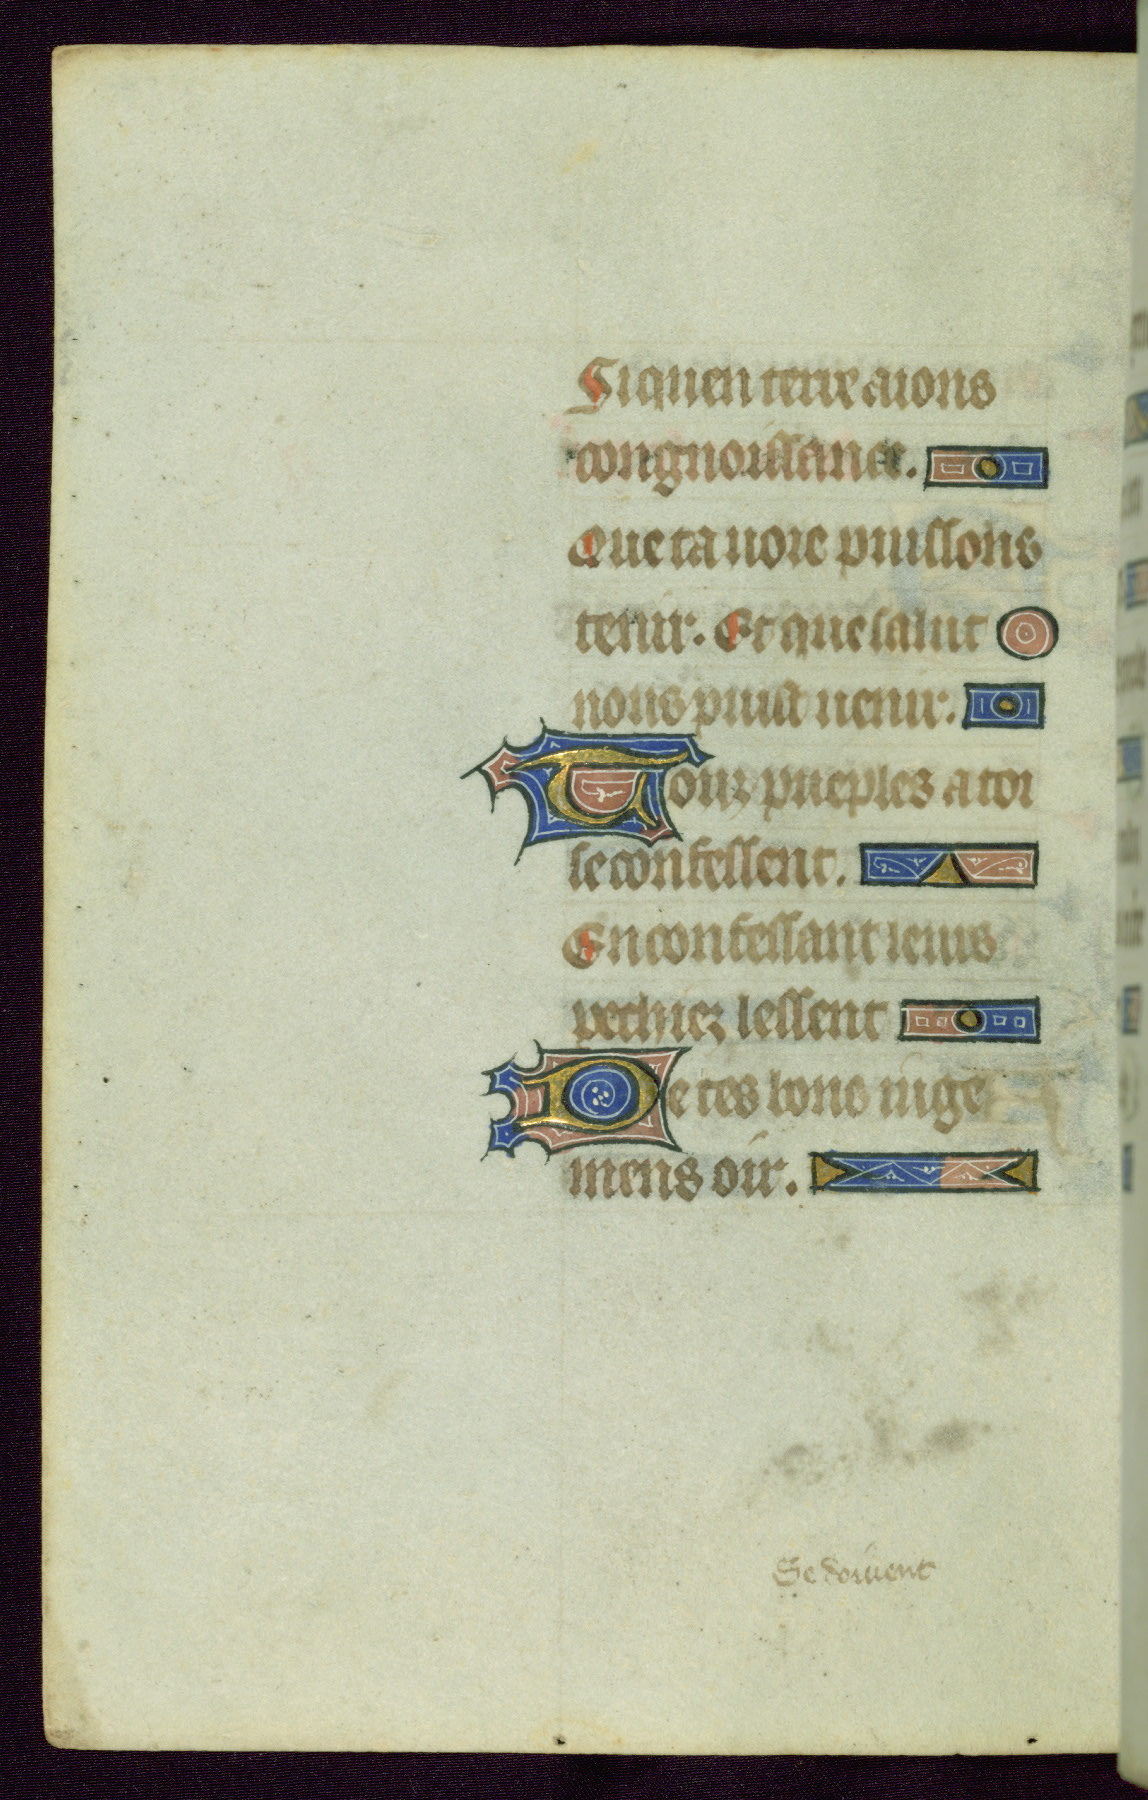 Si quen terre aions
congnoissance.
Que ta uoie puissons
tenir. Et que salut
nous puist uenir.
Touz pueples a toi
se confessent.
En confessant leurs
pechiez lessent
De tes bons iuge
mens oir.
Se doiuent